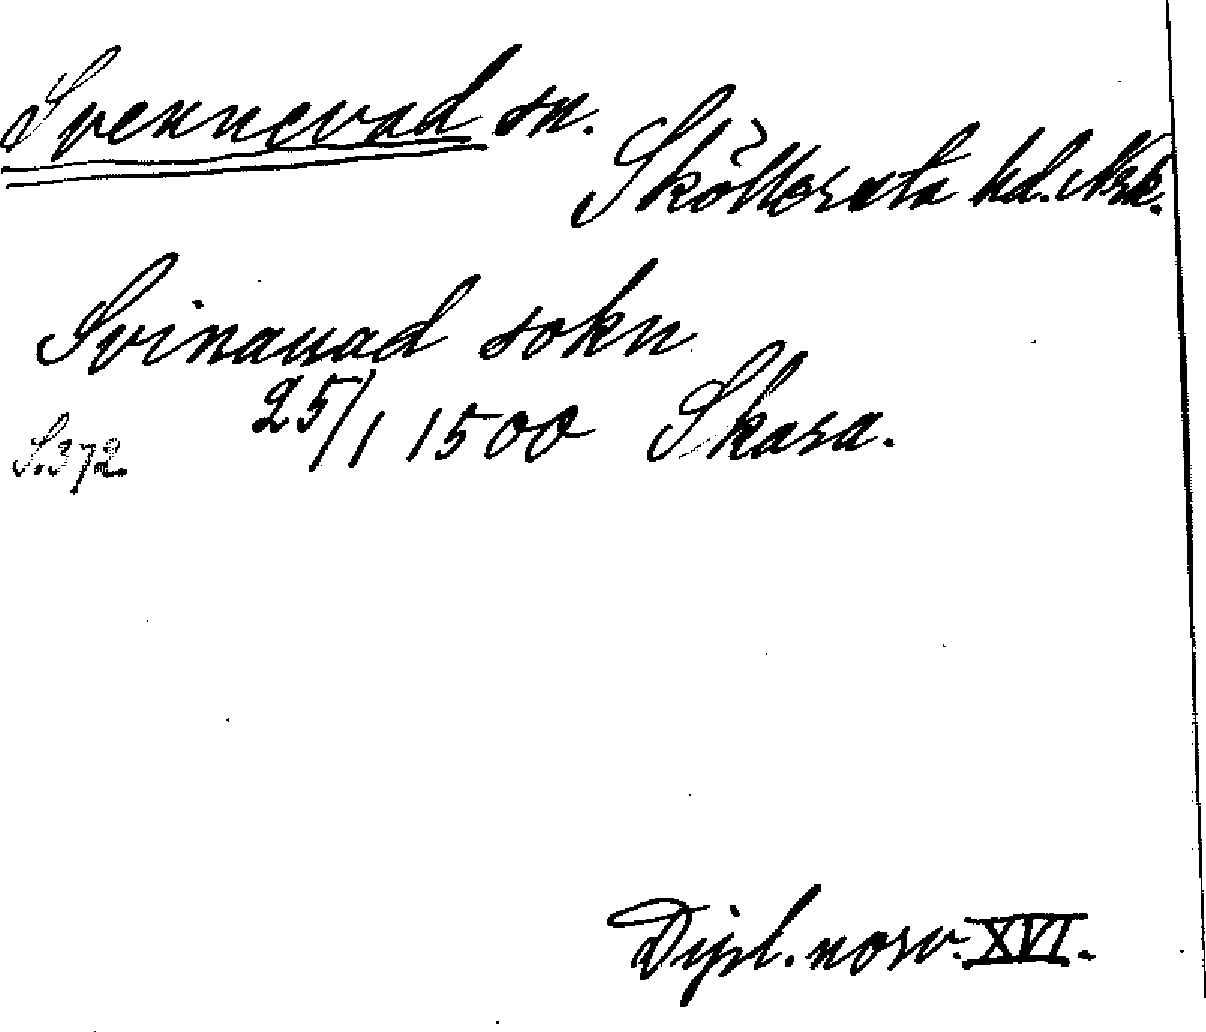 Svennevad sn.
Sköllersta hd. Nrk.
Svinauad sokn
25/1 1500 Skara.
S. 372.
Dipl. norv. XVI.